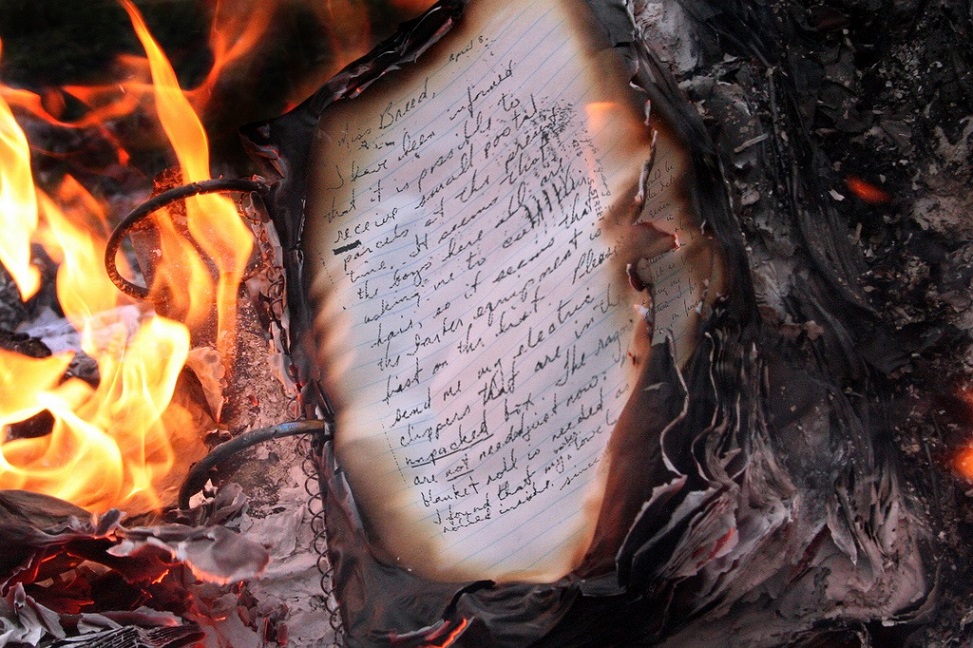 April 8.
Miss Breed,
I have been informed
that it is possible to
receive small postal
parcels at the present
time. It seems that
the boys here all are
asking me to cut their
hair, so it seems that
the barber equipment is
first on the list. Please
send me my electric
clippers that are in the
unpacked box. The
are not needed just now:
blanket roll is needed
I found that my towel
rolled inside.